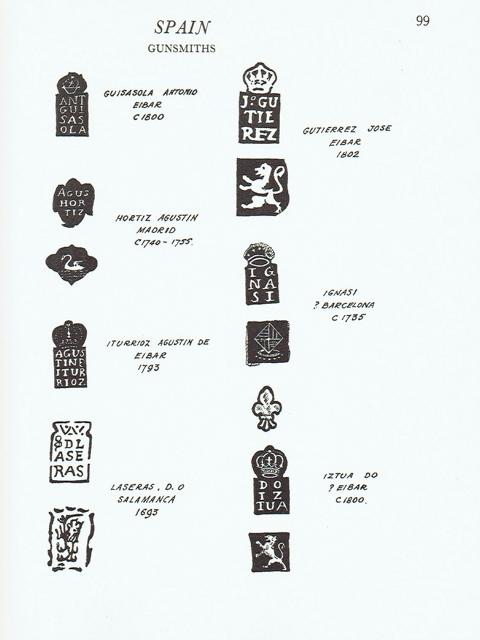 99
SPAIN
GUNSMITHS
ANT
GUI
SAS
OLA
GUISASOLA ANTONIO
EIBAR
C1800
AGUS
HOR
TIZ
HORTIZ AGUSTIN
MADRID
C1740-1755.
AGUS
TINE
ITUR
RIOZ
ITURRIOZ AGUSTIN DE
EIBAR
1793
DL
ASE
RAS
LASERAS, D. O
SALAMANCA
1693
JºGU
TIE
REZ
GUTIERREZ JOSE
EIBAR
1802
IG
NA
SI
IGNASI
? BARCELONA
C 1735
DO
IZ
TUA
IZTUA DO
? EIBAR
C1800.